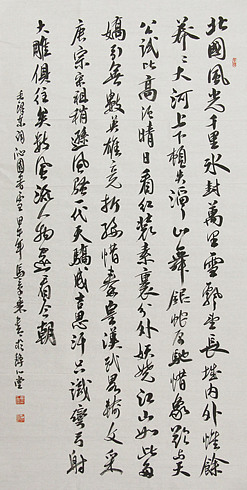 北國風光千里冰封萬里雪飄望長城内外惟餘
莽莽大河上下頓失滔滔山舞銀蛇原馳蠟象欲与天
公試比高須晴日看紅裝素裹分外妖嬈江山如此多
嬌引無數英雄竞折腰惜秦皇漢武略輸文采
唐宗宋祖稍遜風騷一代天驕成吉思汗只識彎弓射
大雕俱往矣數風流人物還看今朝
毛澤東詞沁園春雪甲午年